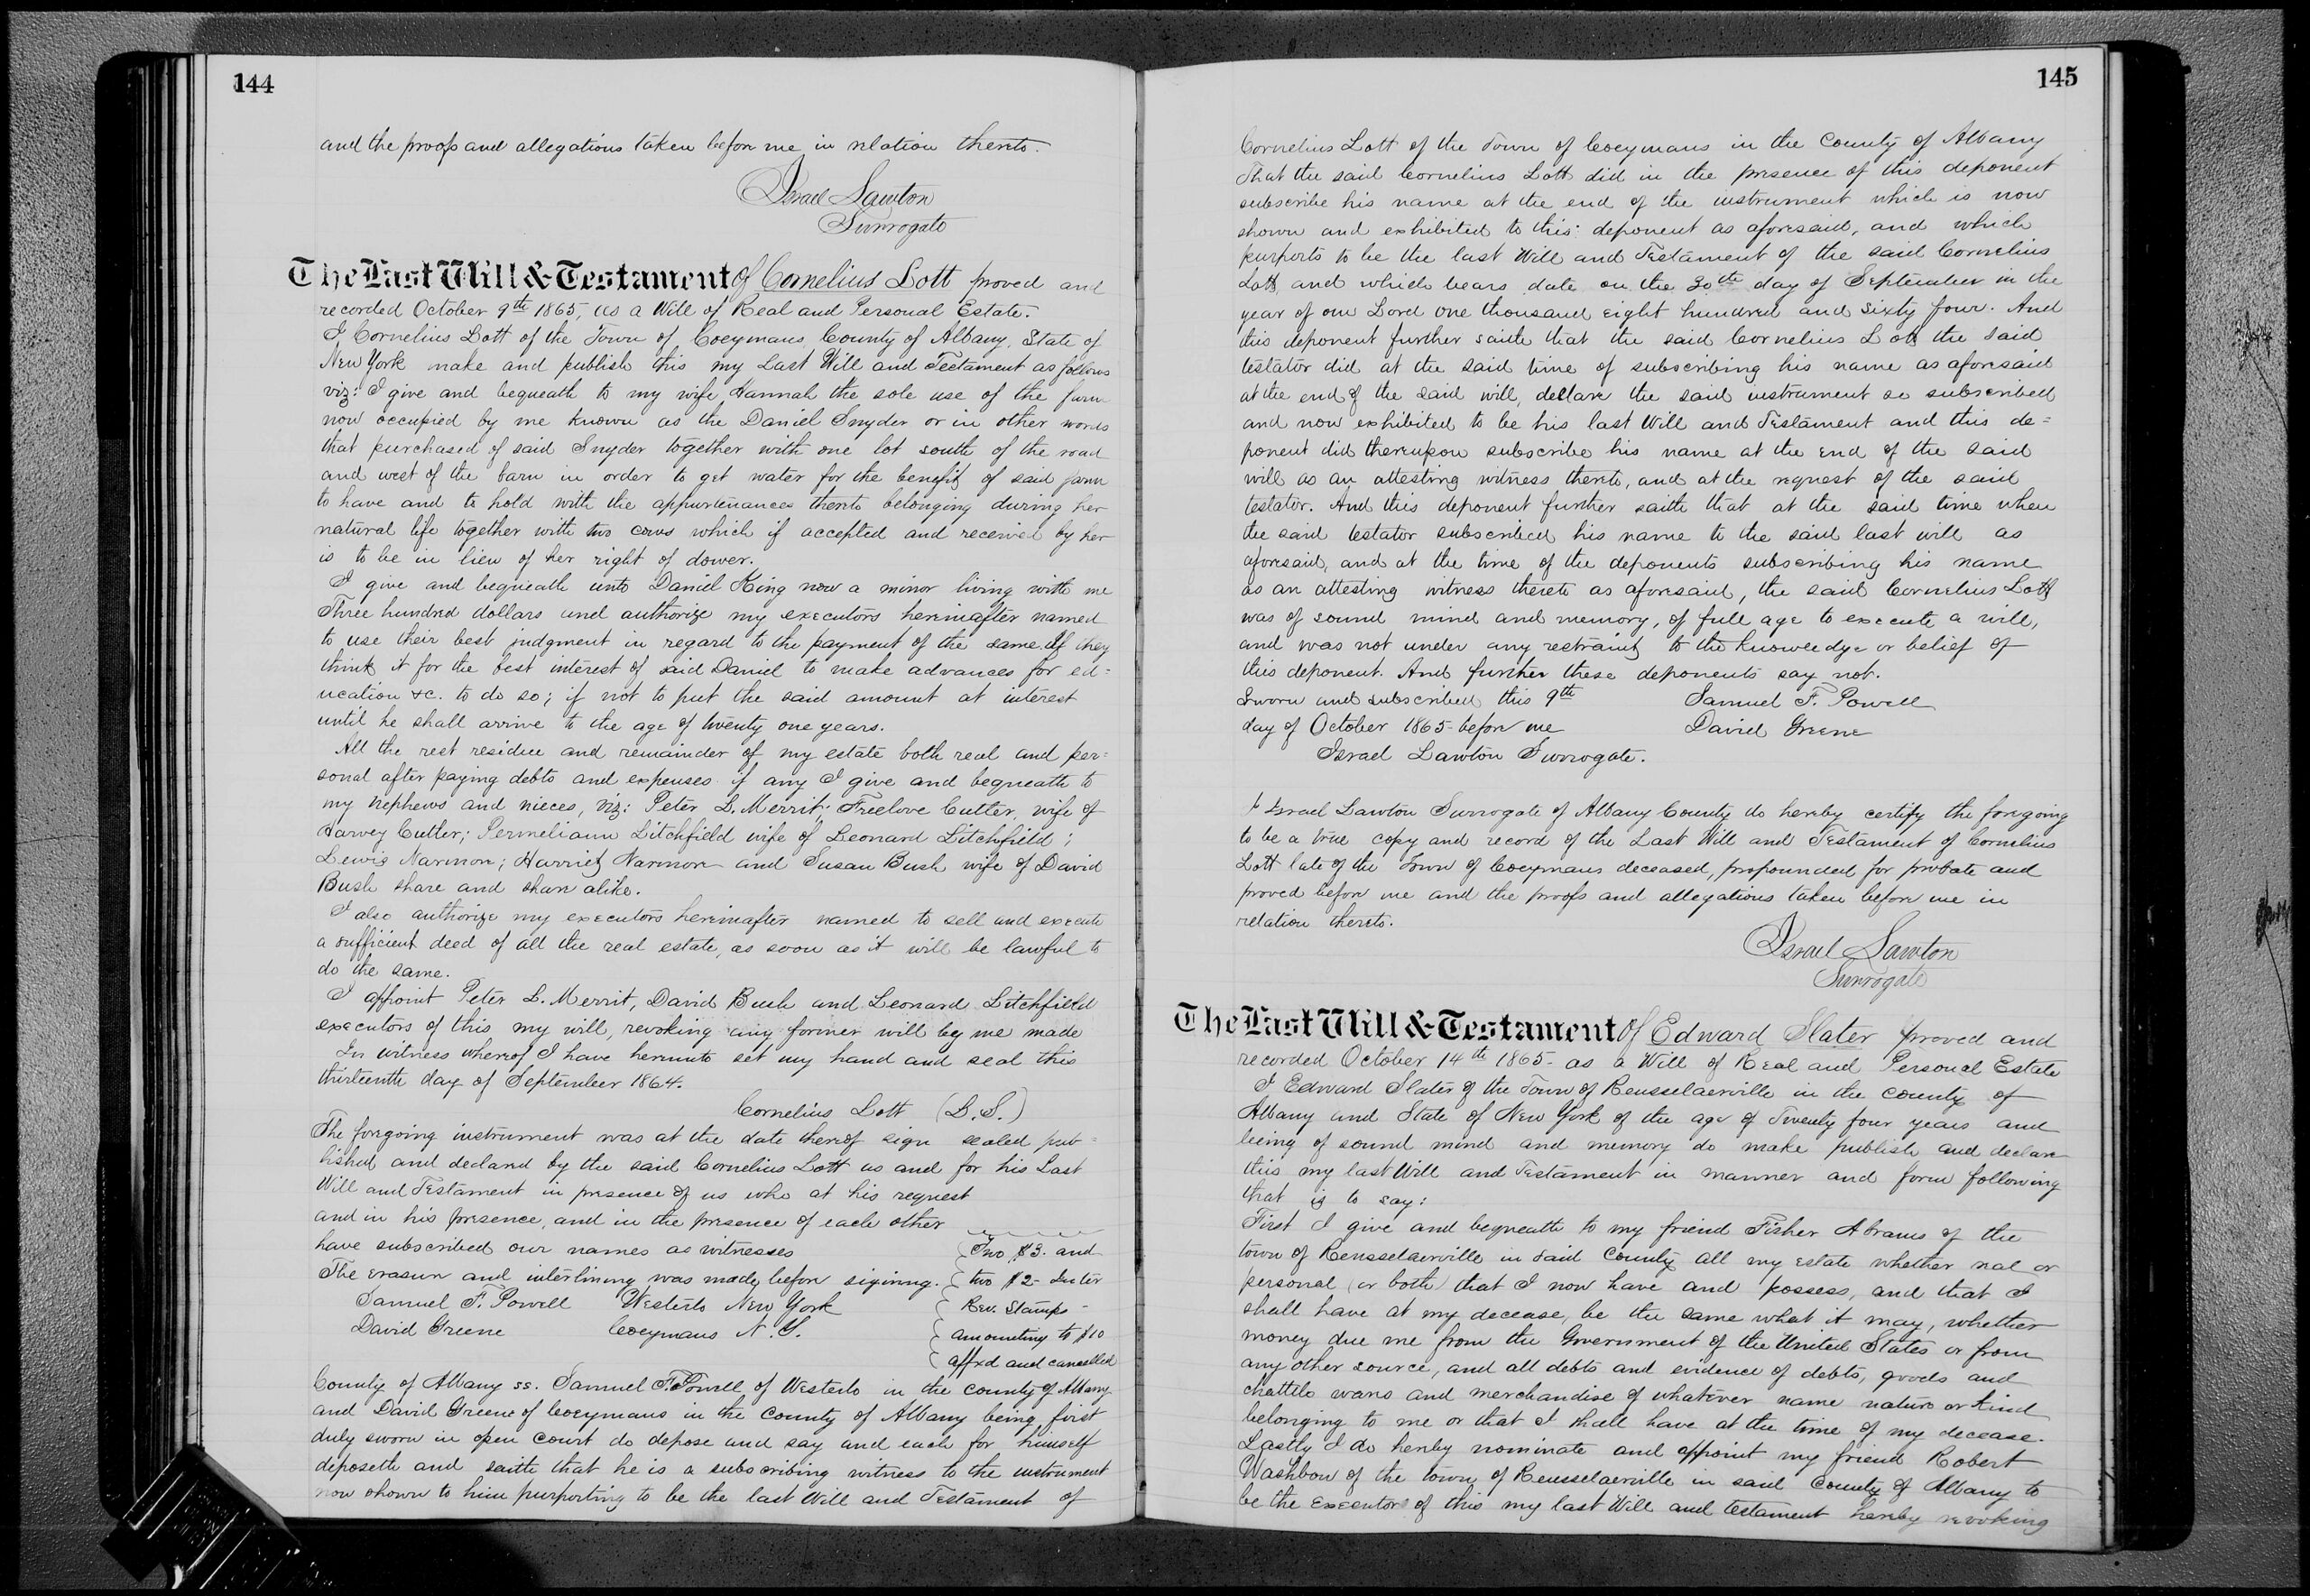 144
and the proofs and allegations taken before me in relation thereto.
Israel Lawton
Surrogate
The Last Will & Testament of Cornelius Lott proved and
recorded October 9th 1865, as a Will of Real and Personal Estate.
I Cornelius Lott of the Town of Coeymans, County of Albany, State of
New York make and publish this my Last Will and Testament as follows
viz: I give and bequeath to my wife Hannah the sole use of the farm
now occupied by me known as the Daniel Snyder or in other words
that purchased of said Snyder together with one lot south of the road
and west of the barn in order to get water for the benefit of said farm
to have and to hold with the appurtenances thereto belonging during her
natural life together with two cows which if accepted and received by her
is to be in lieu of her right of dower.
I give and bequeath unto Daniel King now a minor living with me
Three hundred dollars and authorize my executors hereinafter named
to use their best judgment in regard to the payment of the same. If they
think it for the best interest of said Daniel to make advances for ed=
ucation &c. to do so; if not to put the said amount at interest
until he shall arrive to the age of twenty one years.
All the rest residue and remainder of my estate both real and per=
sonal after paying debts and expenses if any I give and bequeath to
my nephews and nieces, viz: Peter L. Merrit; Freelove Cutler, wife of
Harvey Cutler; Permeliann Litchfield wife of Leonard Litchfield;
Lewis Narmon; Harriet Narmon and Susan Bush wife of David
Bush share and share alike.
I also authorize my executors hereinafter named to sell and execute
a sufficient deed of all the real estate, as soon as it will be lawful to
do the same.
I appoint Peter L. Merrit, David Bush and Leonard Litchfield
executors of this my will, revoking any former will by me made
In witness whereof I have hereunto set my hand and seal this
thirteenth day of September 1864.
Cornelius Lott (L.S.)
The foregoing instrument was at the date thereof sign sealed pub=
lished and declared by the said Cornelius Lott as and for his Last
Will and Testament in presence of us who at his request
and in his presence, and in the presence of each other
have subscribed our names as witnesses
The erasure and interlining was made before signing.
Samuel F. Powell Westerlo New York
David Greene Coeymans N.Y.
Two $3. and
two $2- Inter
Rev. Stamps -
amounting to $10
affxd and cancelled
County of Albany ss. Samuel F. Powell of Westerlo in the county of Albany
and David Greene of Coeymans in the County of Albany being first
duly sworn in open Court do depose and say and each for himself
deposeth and saith that he is a subscribing witness to the instrument
now shown to him purporting to be the last Will and Testament of
145
Cornelius Lott of the Town of Coeymans in the County of Albany
That the said Cornelius Lott did in the presence of this deponent
subscribe his name at the end of the instrument which is now
shown and exhibited to this deponent as aforesaid, and which
purports to be the last Will and Testament of the said Cornelius
Lott, and which bears date on the 30th day of September in the
year of our Lord one thousand eight hundred and sixty four. And
this deponent further saith that the said Cornelius Lott the said
testator did at the said time of subscribing his name as aforesaid
at the end of the said will, declare the said instrument so subscribed
and now exhibited to be his last Will and Testament and this de=
ponent did thereupon subscribe his name at the end of the said
will as an attesting witness thereto, and at the request of the said
testator. And this deponent further saith that at the said time when
the said testator subscribed his name to the said last will as
aforesaid, and at the time of the deponents subscribing his name
as an attesting witness thereto as aforesaid, the said Cornelius Lott
was of sound mind and memory, of full age to execute a will,
and was not under any restraint to the knowledge or belief of
this deponent. And further these deponents say not.
Sworn and subscribed this 9th Samuel F. Powell
day of October 1865- before me David Greene
Israel Lawton Surrogate.
I Israel Lawton Surrogate of Albany County do hereby certify the foregoing
to be a true copy and record of the Last Will and Testament of Cornelius
Lott late of the Town of Coeymans deceased, propounded for probate and
proved before me and the proofs and allegations taken before me in
relation thereto.
Israel Lawton
Surrogate
The Last Will & Testament Of Edward Slater proved and
recorded October 14th 1865- as a Will of Real and Personal Estate
I Edward Slater of the Town of Rensselaerville in the county of
Albany and State of New York of the age of Twenty four years and
being of sound mind and memory do make publish and declare
this my last Will and Testament in manner and form following
that is to say:
First I give and bequeath to my friend Fisher Abrams of the
town of Rensselaerville in said County all my estate whether real or
personal (or both) that I now have and possess, and that I
shall have at my decease, be the same what it may, whether
money due me from the Government of the United States or from
any other source, and all debts and evidence of debts, goods and
chattels wares and merchandise of whatever name nature or kind
belonging to me or that I shall have at the time of my decease.
Lastly I do hereby nominate and appoint my friend Robert
Washbow of the town of Rensselaerville in said County of Albany to
be the Executor of this my last Will and testament hereby revoking